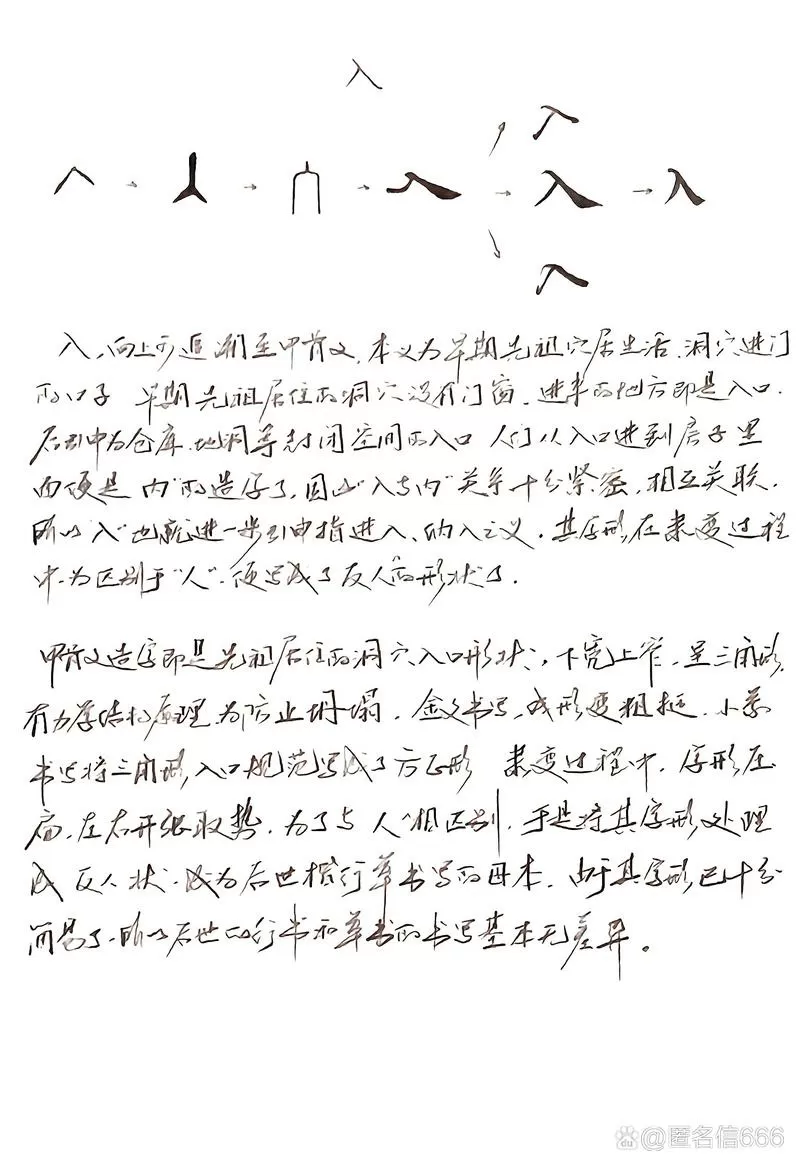 入
入，向上可追溯至甲骨文，本义为早期先祖穴居生活、洞穴进门
的口子 早期先祖居住的洞穴没有门窗，进来的地方即是入口．
后引申为仓库、地洞等封闭空间的入口 人们从入口进到房子里
面便是"内"的造字了，因此"入与内"关系十分紧密，相互关联，
所以"入"也就进一步引申指进入、纳入之义．其字形在隶变过程
中，为区别于"人"，便写成了反"人"的形状了．
甲骨文造字即是先祖居住的洞穴入口形状，下宽上窄，呈三角形，
有力学结构原理，为防止坍塌．金文书写，成形变粗挺．小篆
书写将三角形入口规范写成了方正形 隶变过程中，字形压
扁，左右开张取势．为了与"人"相区别，于是将其字形处理
成反人状，成为后世楷行草书写的母本．由于其字形已十分
简易了，所以后世的行书和草书的书写基本无差异。
@匿名信666